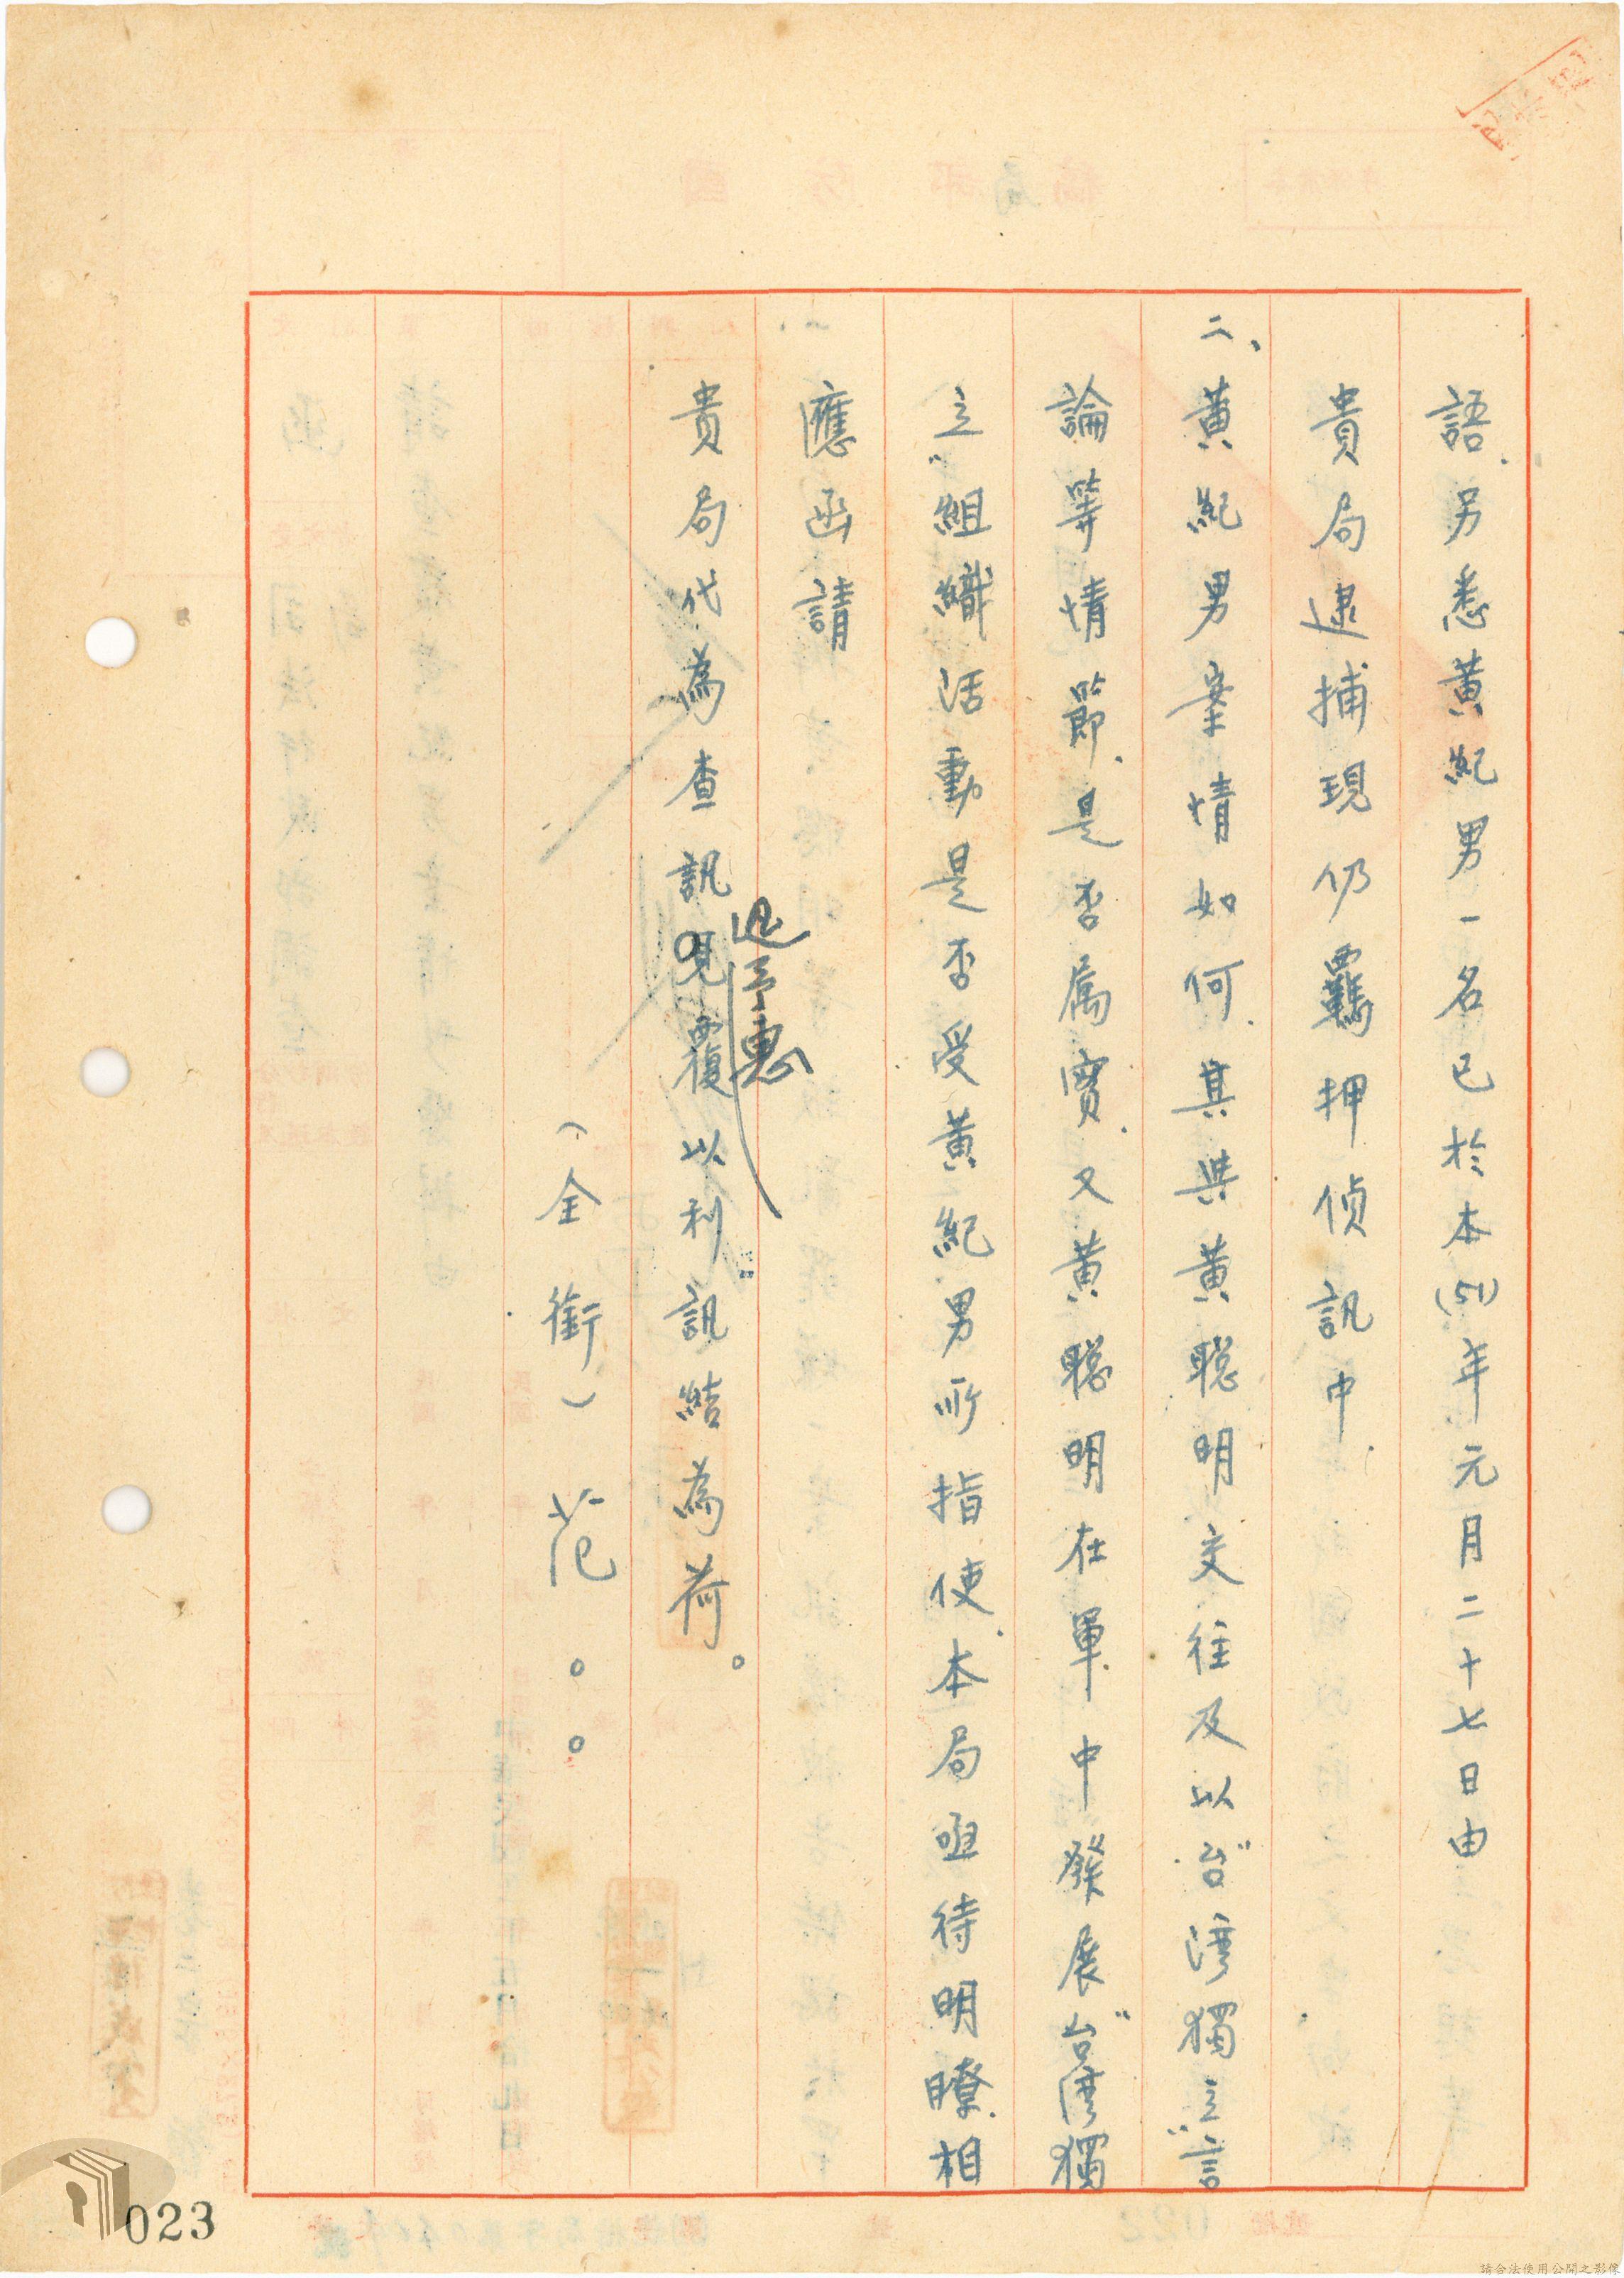 語.另悉黃紀男一名已於本(51)年元月二十七日由
貴局逮捕現仍羈押偵訊中.
二、黃紀男案情如何.其與黃聰明交往及以"台湾獨立"言
論等情節.是否属實.又黃聰明在軍中發展"台湾獨
立"組織活動是否受黃紀男所指使.本局亟待明瞭.相
應函請
貴局代為查訊見覆以利訊結為荷。
迅予惠
(全銜)范。。
023
請合法使用公開之影像